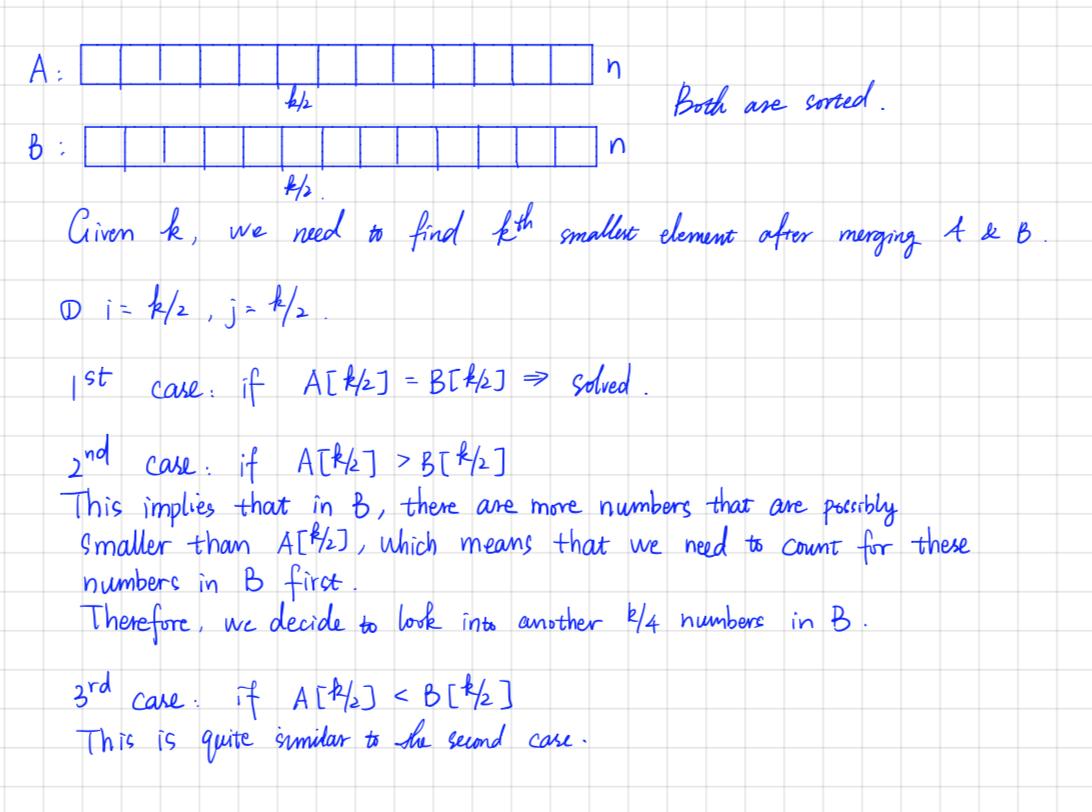 A : n
k/2
Both are sorted.
B : n
k/2.
Given k, we need to find kth smallest element after merging A & B.
① i = k/2, j = k/2.
1st case: if A[k/2] = B[k/2] ⇒ solved.
2nd case: if A[k/2] > B[k/2]
This implies that in B, there are more numbers that are possibly
smaller than A[k/2], which means that we need to count for these
numbers in B first.
Therefore, we decide to look into another k/4 numbers in B.
3rd case: if A[k/2] < B[k/2]
This is quite similar to the second case.